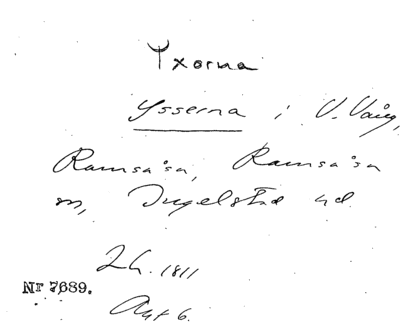 Yxorna
Ysserna i V. Vång,
Ramsåsa, Ramsåsa
sn, Ingelstad hd.
Lh. 1811
Nr 7689.
Akt 6.